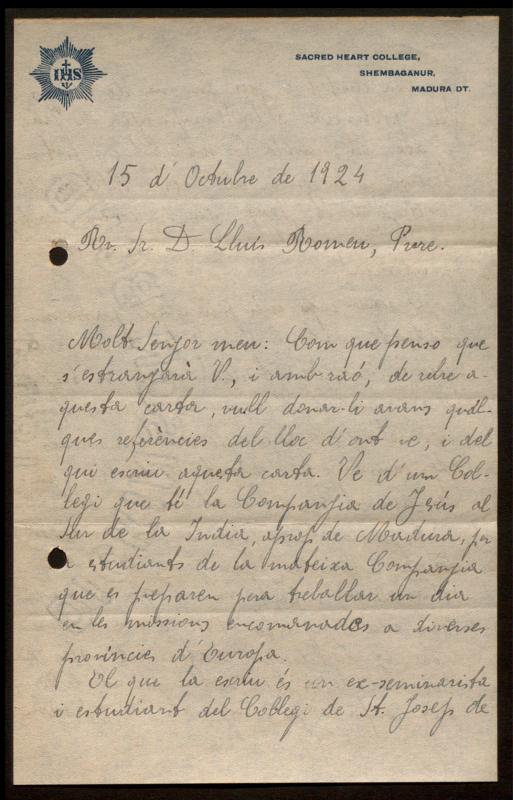 IHS
SACRED HEART COLLEGE,
SHEMBAGANUR,
MADURA DT.
15 d'Octubre de 1924
Rv. Sr. D. Lluís Romeu, Pvre.
Molt Senyor meu: Com que penso que
s'estranyarà V., i amb raó, de rebre a-
questa carta, vull donar-li avans quel-
ques referències del lloc d'ont ve, i del
qui escriu aqueta carta. Ve d'un Col-
legi que té la Companyia de Jesús al
Sur de la India, aprop de Madura, per
a estudiants de la mateixa Companyia
que es preparen pera treballar un dia
en les missions encomanades a diverses
províncies d'Europa.
El que la escriu és un ex-seminarista
i estudiant del Collegi de St. Josep de